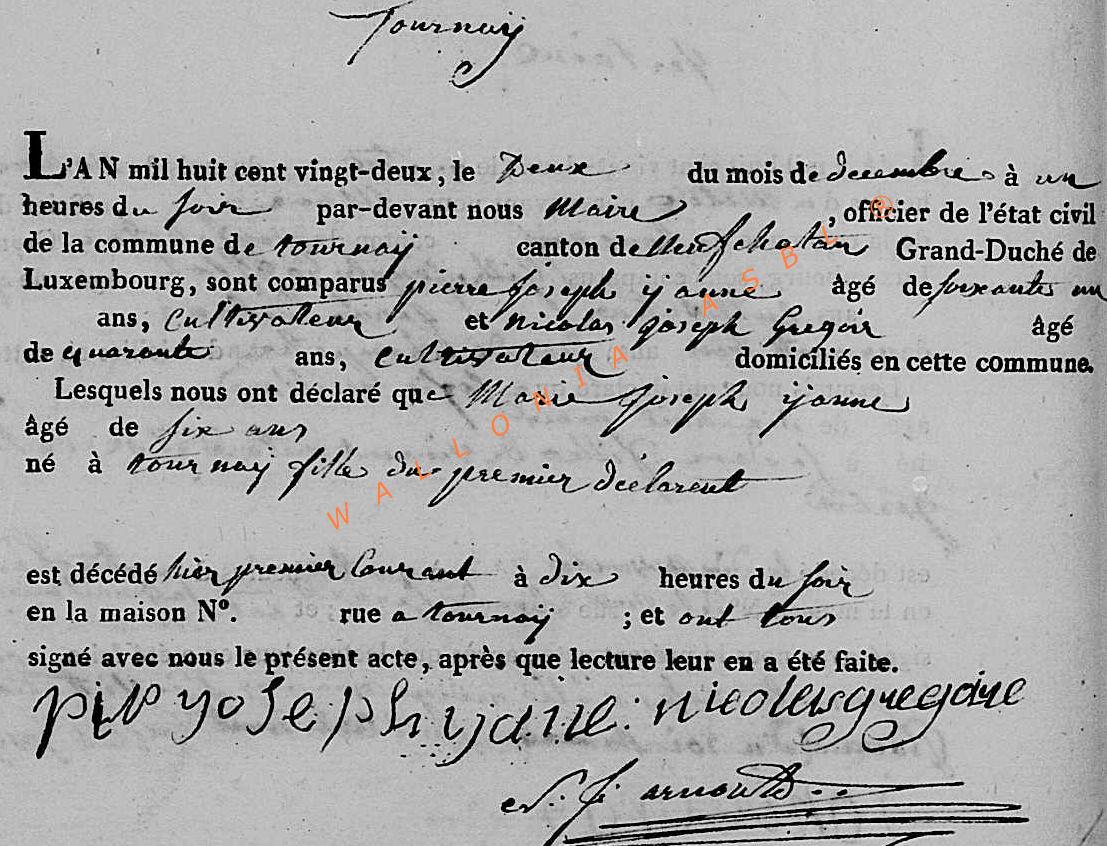 Tournay
L'AN mil huit cent vingt-deux, le Deux du mois de decembre à un
heures du soir par-devant nous Maire , officier de l'état civil
de la commune de tournay canton de Neufchatau Grand-Duché de
Luxembourg, sont comparus pierre joseph yanne âgé de soixante un
ans, cultivateur et nicolas joseph Gregoir âgé
de quarante ans, cultivateur domiciliés en cette commune.
Lesquels nous ont déclaré que Marie joseph yanne
âgé de six ans
né à tournay fille du premier déclarent
est décédé hier premier Courant à dix heures du soir
en la maison Nº. rue a tournay ; et ont tous
signé avec nous le présent acte, après que lecture leur en a été faite.
yoseph ijane nicolas gregoire
arnould
WALLONIA ASBL ®